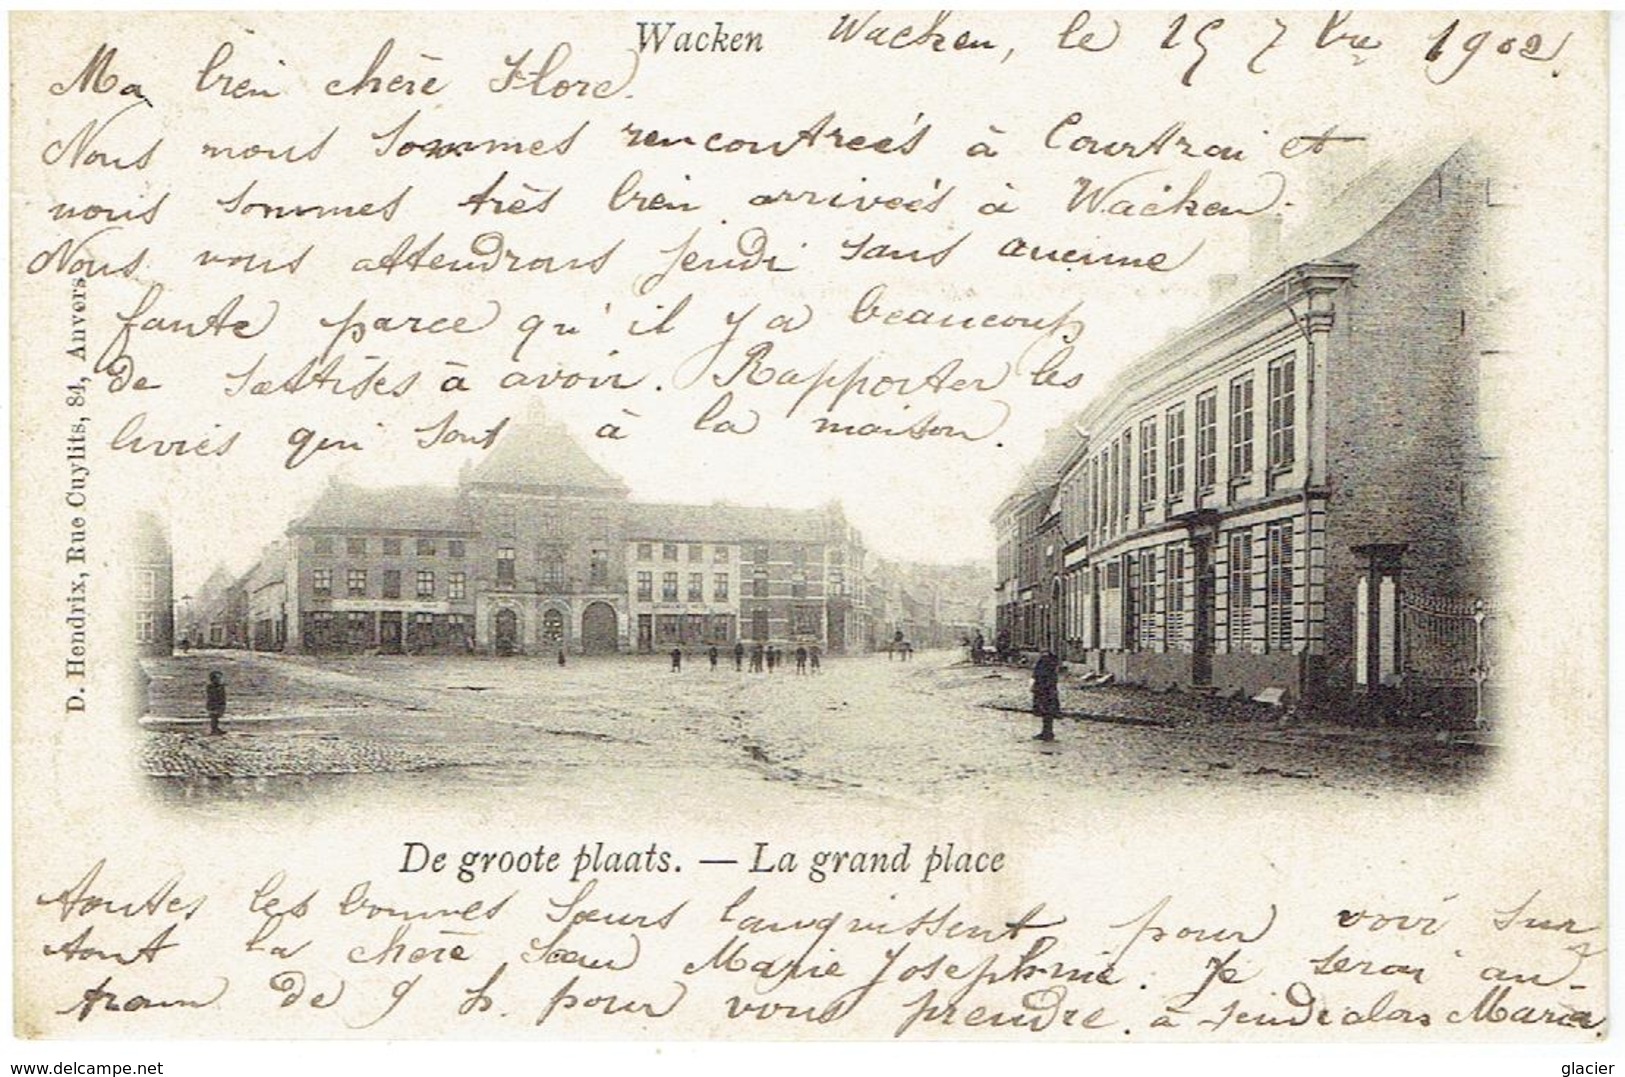 Wacken
Wacken, le 15 7bre 1902.
Ma bien chère Flore.
Nous nous sommes rencontreés à Courtrai et
nous sommes très bien arriveés à Wacken.
Nous vous attendrons jeudi sans aucune
faute parce qu'il y a beaucoup
de à avoir. Rapporter les
livres qui sont à la maison.
D. Hendrix, Rue Cuylits, 84, Anvers
De groote plaats. — La grand place
toutes les bonnes Sœurs languissent pour voir sur
tout la chère Sœur Marie Josephnie. Je serai au
train de 9 h. pour vous prendre. à jeudi alors Maria.
www.delcampe.net
glacier